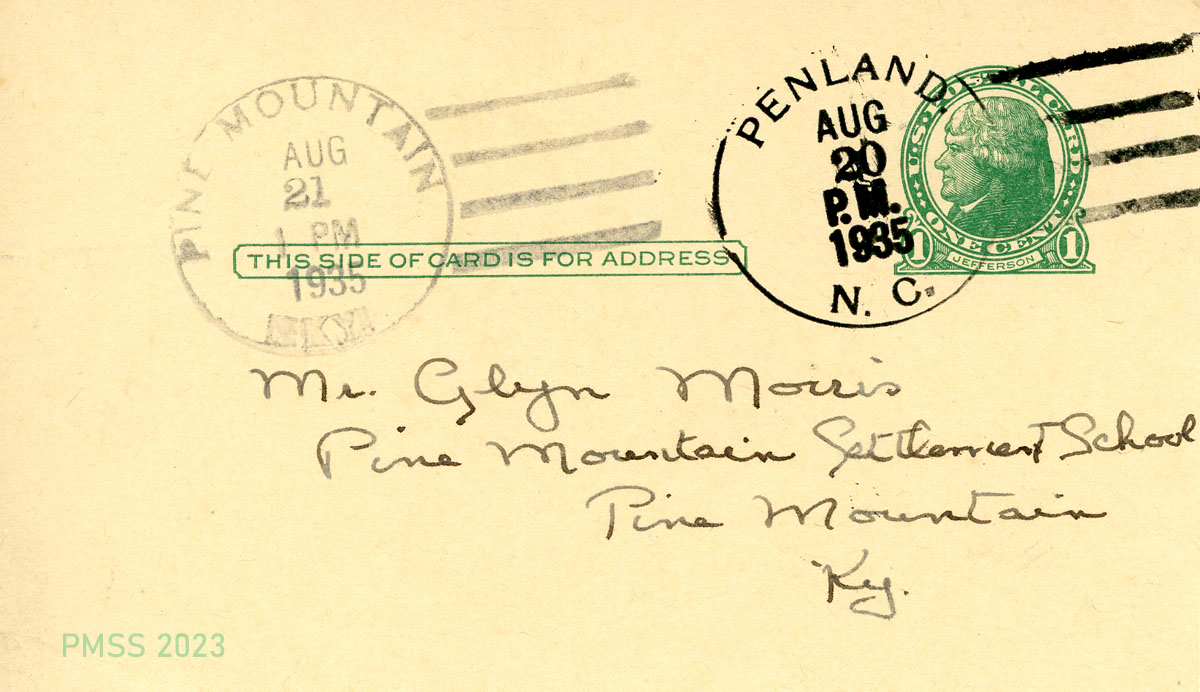 PINE MOUNTAIN
AUG
21
1 PM
1935
KY.
PENLAND.
AUG
20
P.M.
1935
N. C.
U.S. POSTAL CARD
ONE CENT
1 JEFFERSON 1
THIS SIDE OF CARD IS FOR ADDRESS
Mr. Glyn Morris
Pine Mountain Settlement School
Pine Mountain
Ky.
PMSS 2023